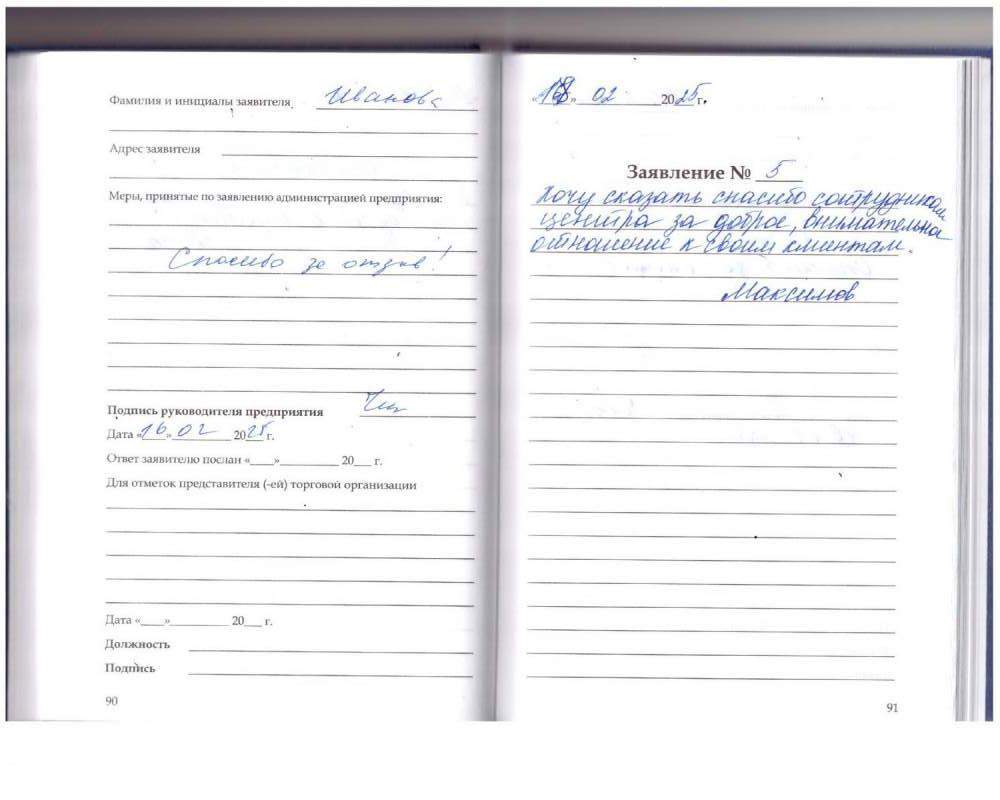 Фамилия и инициалы заявителя Иванова
Адрес заявителя
Меры, принятые по заявлению администрацией предприятия:
Спасибо за отзыв!
Подпись руководителя предприятия
Дата «16» 02 2025 г.
Ответ заявителю послан «____»__________ 20___ г.
Для отметок представителя (-ей) торговой организации
Дата «____»__________ 20___ г.
Должность
Подпись
90
02 2025 г.
Заявление № 5
Хочу сказать спасибо сотрудникам
центра за доброе, внимательное
отношение к своим клиентам.
Максимов
91